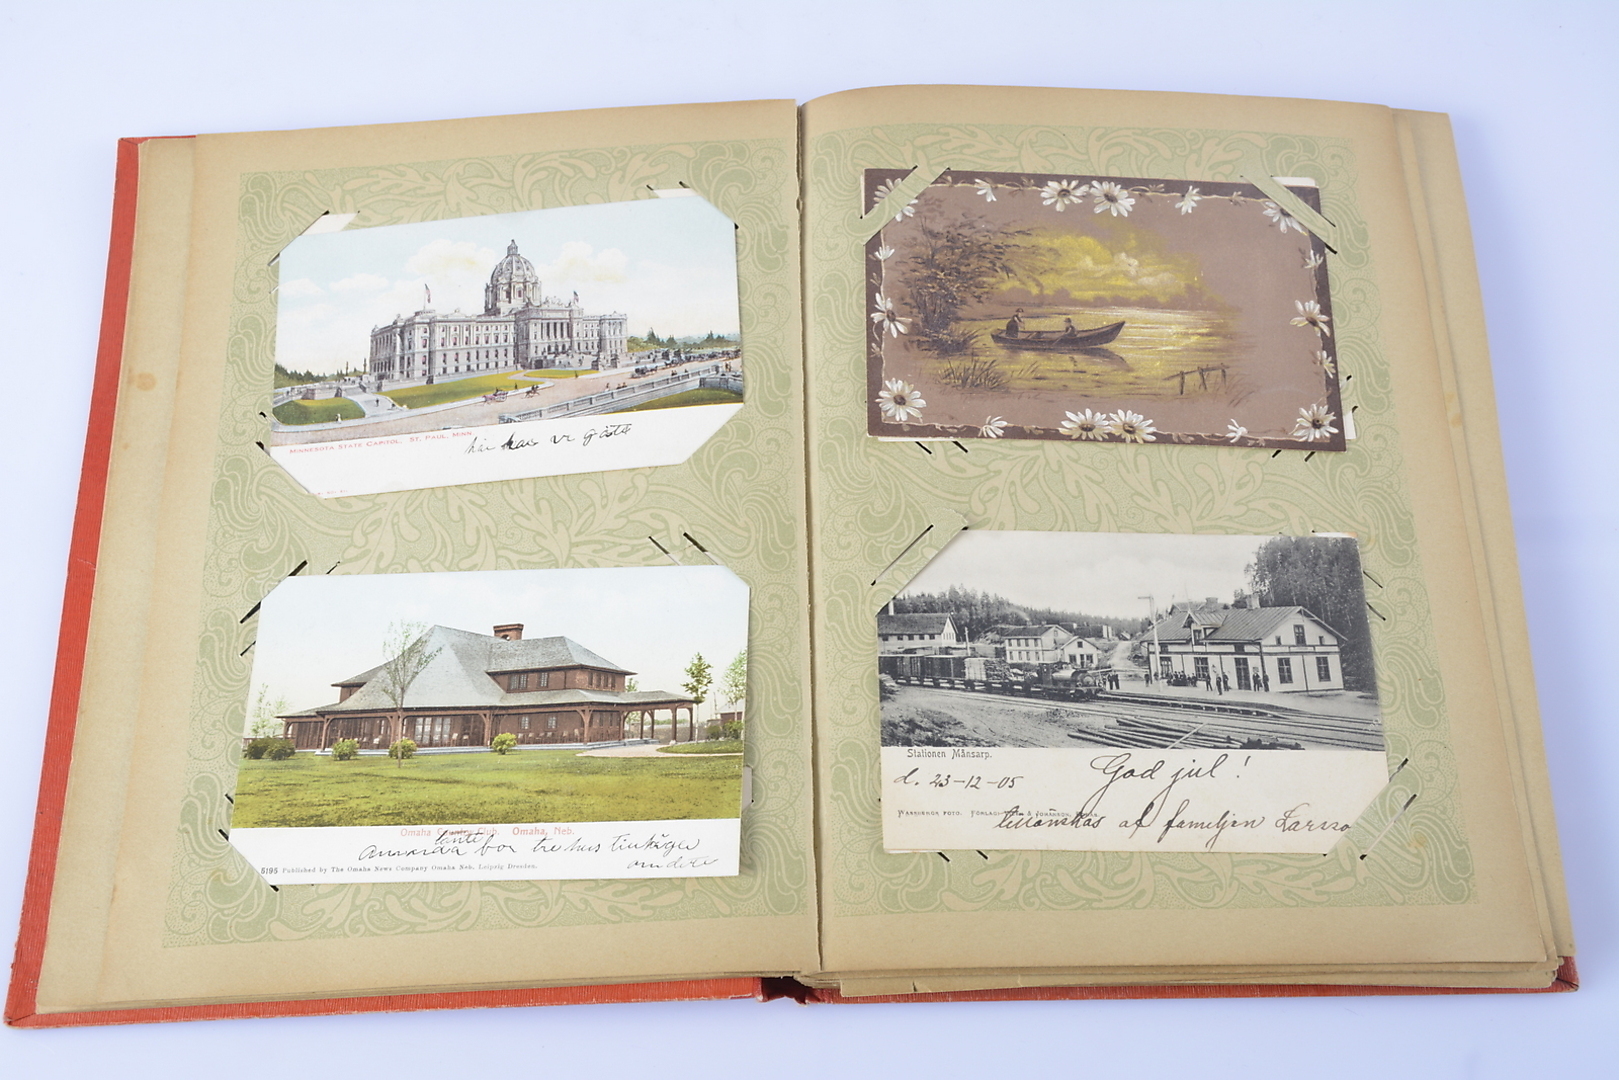 MINNESOTA STATE CAPITOL. ST. PAUL, MINN.
här vr gått
Omaha Country Club. Omaha, Neb.
tante
Amanda bor tre hus
andere
5195 Published by The Omaha News Company Omaha Neb., Leipzig Dresden.
Stationen Månsarp.
d. 23-12-05
God jul!
FOTO. FÖRLAG
tillönskas af familjen Larsso